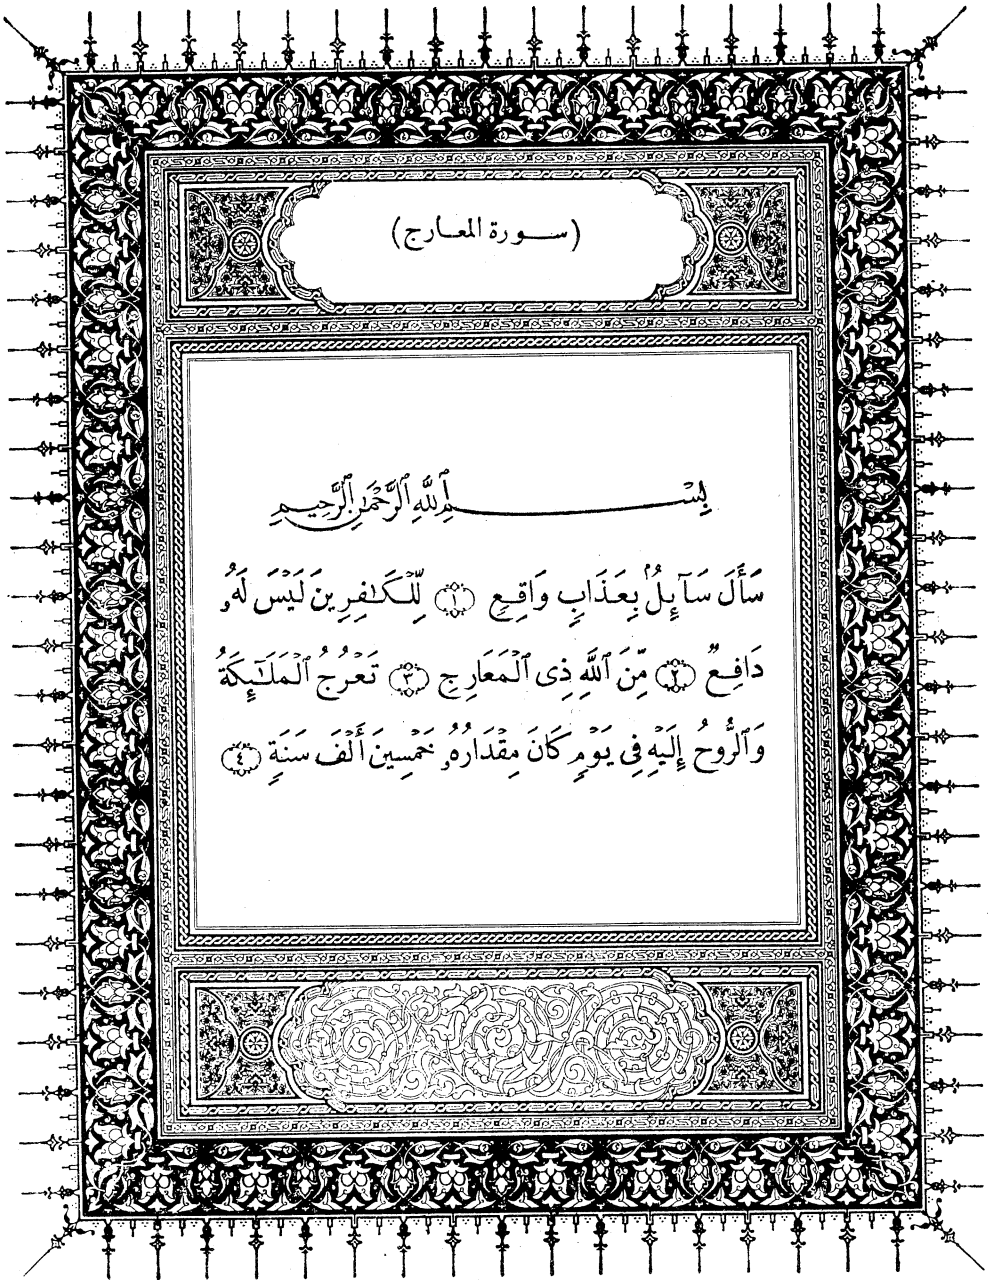 (سورة المعارج)
بِسْمِ ٱللَّهِ ٱلرَّحْمَٰنِ ٱلرَّحِيمِ
سَأَلَ سَآئِلٌۢ بِعَذَابٍ وَاقِعٍ ١ لِّلْكَٰفِرِينَ لَيْسَ لَهُۥ
دَافِعٌ ٢ مِّنَ ٱللَّهِ ذِى ٱلْمَعَارِجِ ٣ تَعْرُجُ ٱلْمَلَٰٓئِكَةُ
وَٱلرُّوحُ إِلَيْهِ فِى يَوْمٍ كَانَ مِقْدَارُهُۥ خَمْسِينَ أَلْفَ سَنَةٍ ٤